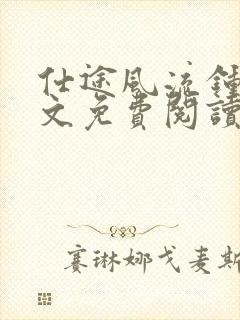 仕途風流鍾
文免費閱讀
賽琳娜戈麦斯